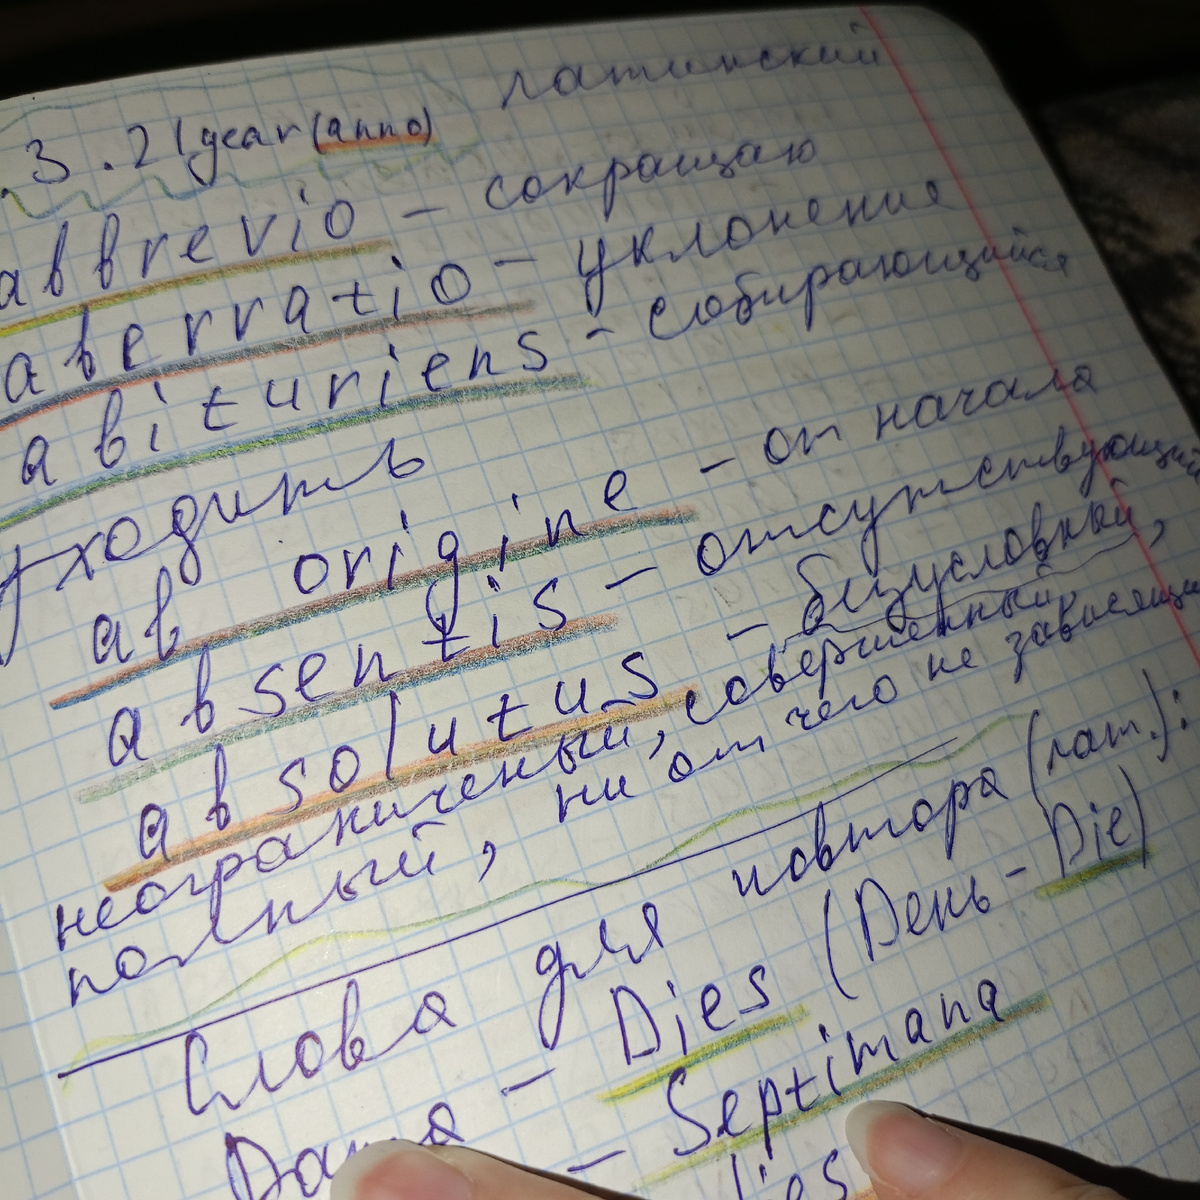 .3.21year(anno) латинский
abbrevio – сокращаю
aberratio – уклонение
abituriens – собирающийся
уходить
ab origine – от начала
absentis – отсутствующий
absolutus – безусловный,
неограниченый, совершенный,
полный, ни от чего не зависящи
Слова для повтора (лат.):
Дата – Dies (День – Die)
– Septimana
dies